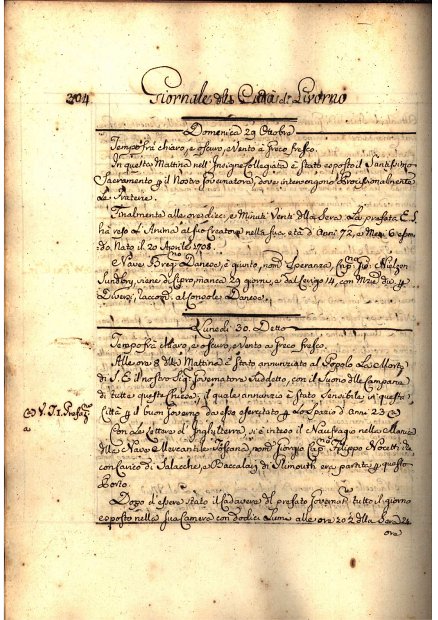 304 Giornale della Città di Livorno
Domenica 29 Ottobre
Tempo frà chiaro, e oscuro, e Vento à Greco fresco.
In questa Mattina nell' Insigne Collegiata è stato esposto il Santissimo
Sacramento p il Nostro Governatore, dove intervengono Processionalmente
Le Fraterie.
Finalmente alle ore dieci, e Minuti Venti della Sera La prefata E. S.
hà reso L' Anima al suo Creatore nella sua età d'Anni 72, e Mesi 6 essen
do Nato il 20 Aprile 1708.
è Nave Danese, è giunto, nom Speranza, Cap. Nielzen
viene di Cipro, manca 29 giorni, e dal Zergo 14, con
Diversi, raccom. al Console Danese.
Lunedi 30. Detto
Tempo frà chiaro, e oscuro, e Vento à Greco fresco.
Alle ore 8 della Mattina è Stato annunziato al Popolo La Morte
di S. E. il nostro Sig. Governatore Suddetto, con il Suono delle Campane
di tutte queste Chiese, il quale annunzio è Stato Sensibile in questa
Città p il buon Governo da esso esercitato p Lo Spazio d' Anni 23
V. T. I.
a
Con Le Lettere d' Inghilterra, si è inteso il Naufragio nella Manica
della Nave Mercantile Toscana, nom Giorgio Cap. Filippo
con Carico di Salacche, e Baccalari di Plimouth era partita p questo
Porto.
Dopo d'essere stato il Cadavere del prefato Governat. tutto il giorno
esposto nella sua Camera con dodici Lumi alle ore della Sera
ore